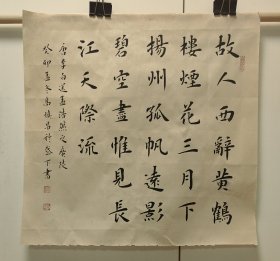 故人西辭黄鶴
樓煙花三月下
揚州孤帆遠影
碧空盡惟見長
江天際流
唐李白送孟浩然之廣陵
癸卯孟冬